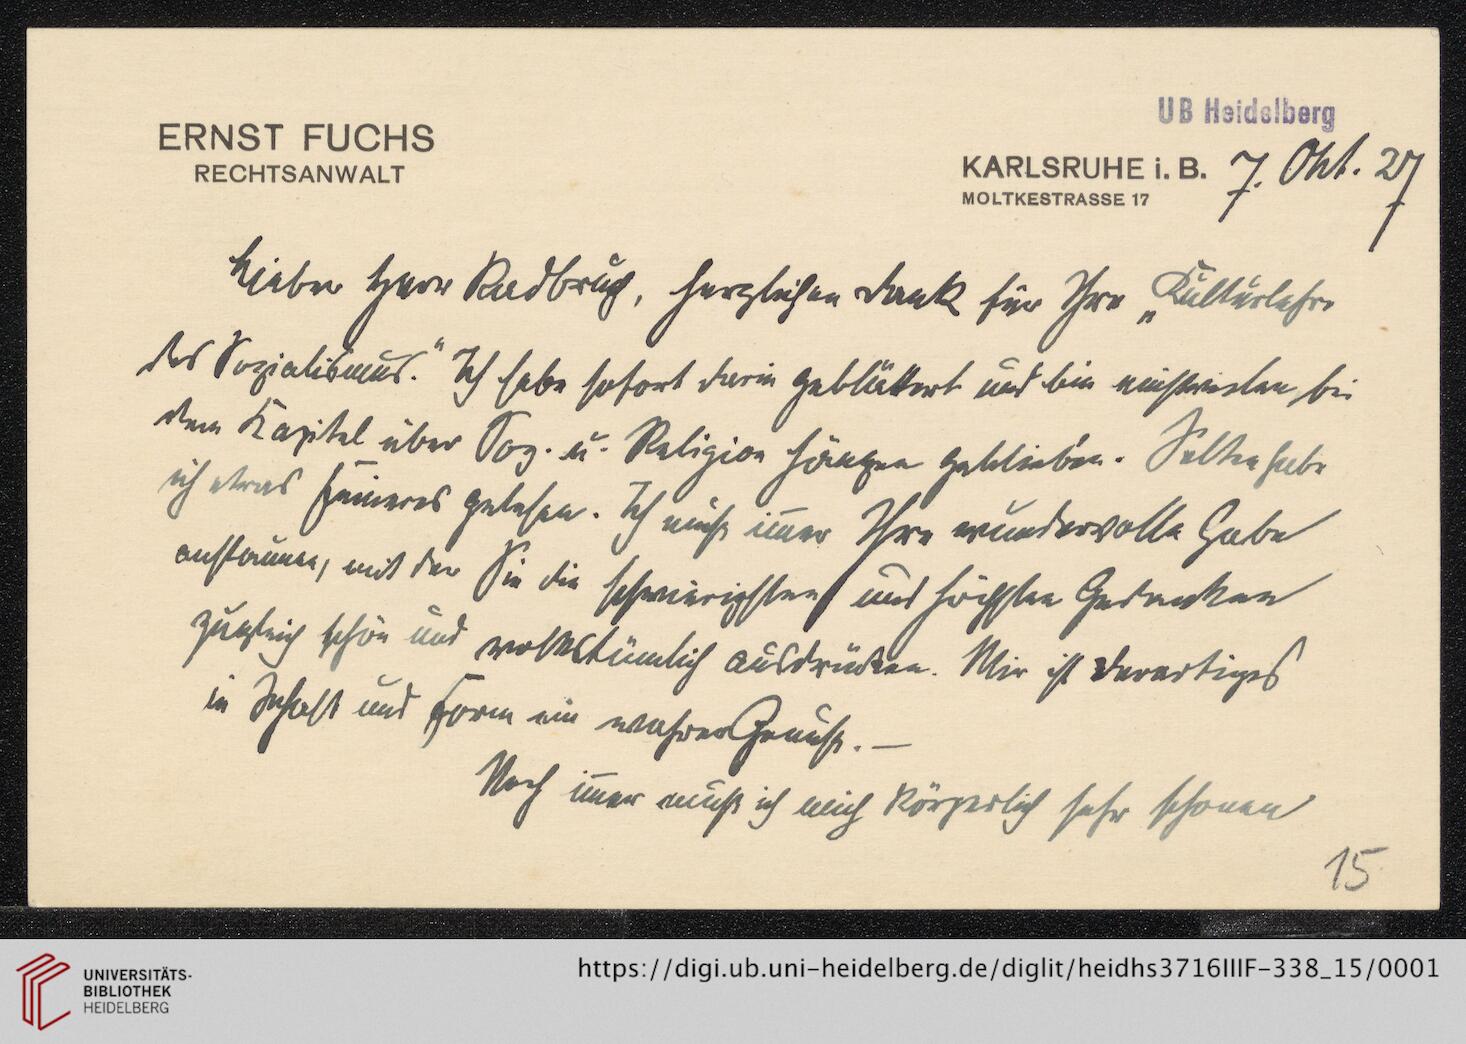 UB Heidelberg
ERNST FUCHS
RECHTSANWALT
KARLSRUHE i. B. 7. Okt. 27
MOLTKESTRASSE 17
Lieber Herr Radbruch, herzlichen Dank für Ihre „Kulturlehre
des Sozialismus." Ich habe sofort darin geblättert und bin einstweilen bei
dem Kapitel über Soz. u. Religion hängen geblieben. Selten habe
ich etwas Feineres gelesen. Ich muß im̄er Ihre wundervolle Gabe
anstaunen, mit der Sie die schwierigsten und höchsten Gedanken
zugleich schön und volkstümlich ausdrücken. Mir ist derartiges
in Inhalt und Form ein wahrer Genuß. —
Noch im̄er muß ich mich körperlich sehr schonen
15
UNIVERSITÄTS-
BIBLIOTHEK
HEIDELBERG
https://digi.ub.uni-heidelberg.de/diglit/heidhs3716IIIF-338_15/0001